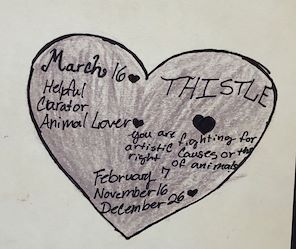 March 16
THISTLE
Helpful
Curator
Animal Lover
you are fighting for
artistic causes or the
right of animals
February 7
November 16
December 26